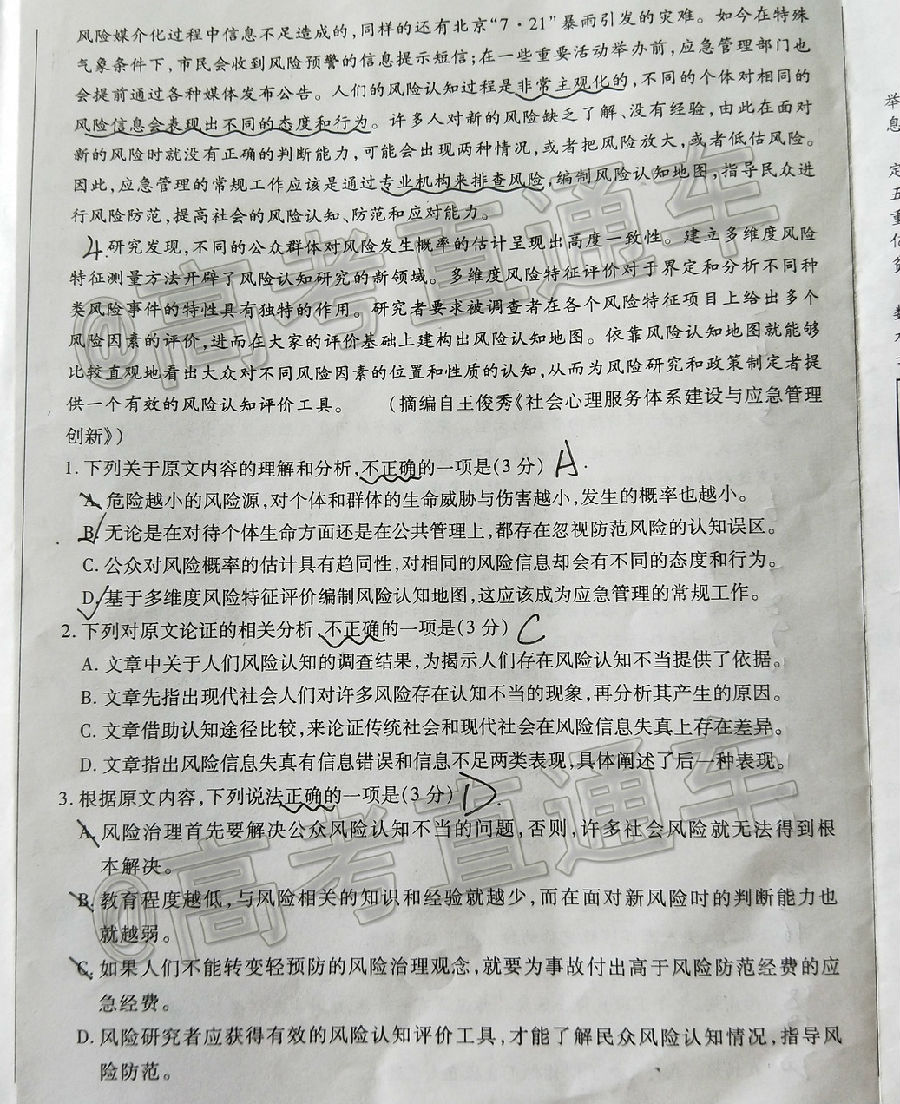 风险媒介化过程中信息不足造成的,同样的还有北京“7·21”暴雨引发的灾难。如今在特殊
气象条件下,市民会收到风险预警的信息提示短信;在一些重要活动举办前,应急管理部门也
会提前通过各种媒体发布公告。人们的风险认知过程是非常主观化的,不同的个体对相同的
风险信息会表现出不同的态度和行为。许多人对新的风险缺乏了解、没有经验,由此在面对
新的风险时就没有正确的判断能力,可能会出现两种情况,或者把风险放大,或者低估风险。
因此,应急管理的常规工作应该是通过专业机构来排查风险,编制风险认知地图,指导民众进
行风险防范,提高社会的风险认知、防范和应对能力。
4.研究发现,不同的公众群体对风险发生概率的估计呈现出高度一致性。建立多维度风险
特征测量方法开辟了风险认知研究的新领域。多维度风险特征评价对于界定和分析不同种
类风险事件的特性具有独特的作用。研究者要求被调查者在各个风险特征项目上给出多个
风险因素的评价,进而在大家的评价基础上建构出风险认知地图。依靠风险认知地图就能够
比较直观地看出大众对不同风险因素的位置和性质的认知,从而为风险研究和政策制定者提
供一个有效的风险认知评价工具。 (摘编自王俊秀《社会心理服务体系建设与应急管理
创新》)
1.下列关于原文内容的理解和分析,不正确的一项是(3分) A.
A.危险越小的风险源,对个体和群体的生命威胁与伤害越小,发生的概率也越小。
B.无论是在对待个体生命方面还是在公共管理上,都存在忽视防范风险的认知误区。
C.公众对风险概率的估计具有趋同性,对相同的风险信息却会有不同的态度和行为。
D.基于多维度风险特征评价编制风险认知地图,这应该成为应急管理的常规工作。
2.下列对原文论证的相关分析,不正确的一项是(3分) C
A.文章中关于人们风险认知的调查结果,为揭示人们存在风险认知不当提供了依据。
B.文章先指出现代社会人们对许多风险存在认知不当的现象,再分析其产生的原因。
C.文章借助认知途径比较,来论证传统社会和现代社会在风险信息失真上存在差异。
D.文章指出风险信息失真有信息错误和信息不足两类表现,具体阐述了后一种表现。
3.根据原文内容,下列说法正确的一项是(3分) D.
A.风险治理首先要解决公众风险认知不当的问题,否则,许多社会风险就无法得到根
本解决。
B.教育程度越低,与风险相关的知识和经验就越少,而在面对新风险时的判断能力也
就越弱。
C.如果人们不能转变轻预防的风险治理观念,就要为事故付出高于风险防范经费的应
急经费。
D.风险研究者应获得有效的风险认知评价工具,才能了解民众风险认知情况,指导风
险防范。
@高考直通车
@高考直通车
举
息
定
五
重